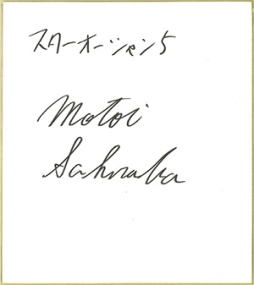 スターオーシャン5
Motoi
Sakuraba